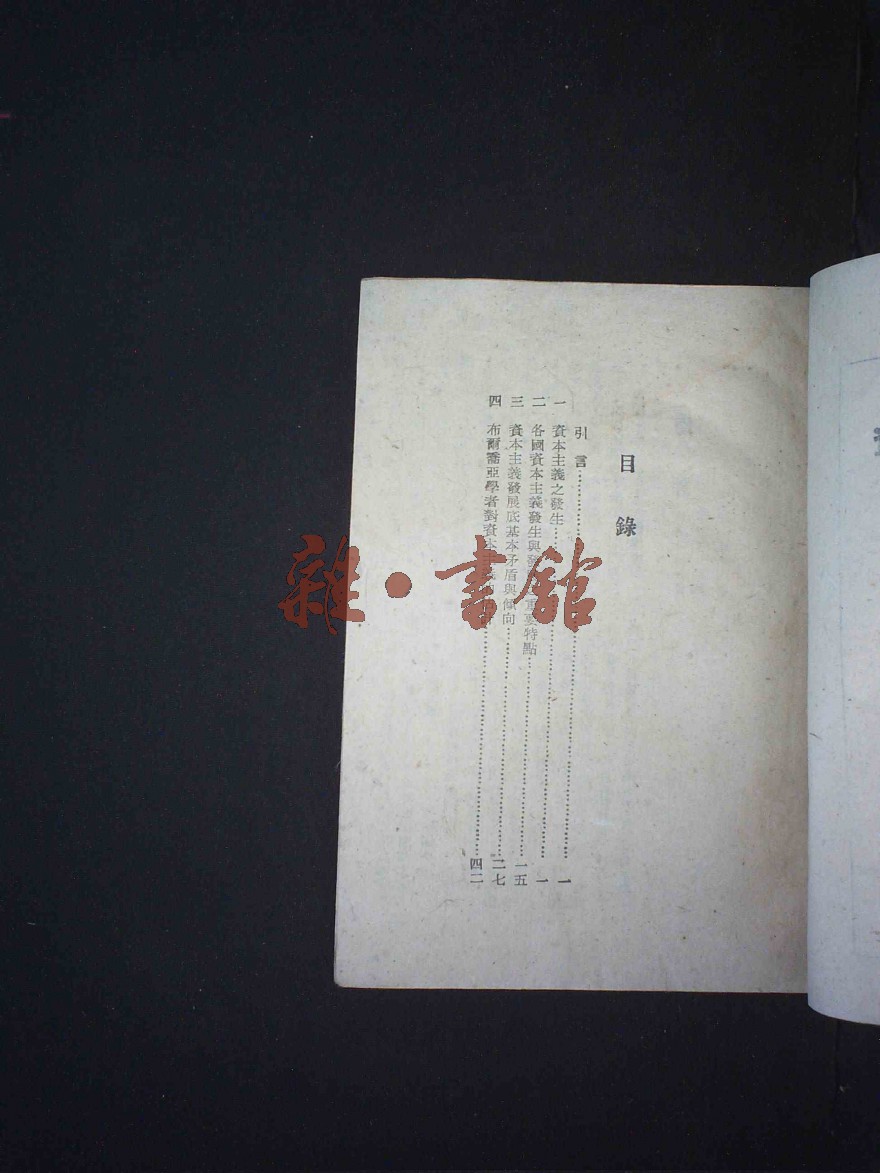 目錄
引言……一
一 資本主義之發生……一
二 各國資本主義發生與發 重要特點……一五
三 資本主義發展底基本矛盾與傾向……二七
四 布爾喬亞學者對資本……四二
雜·書館